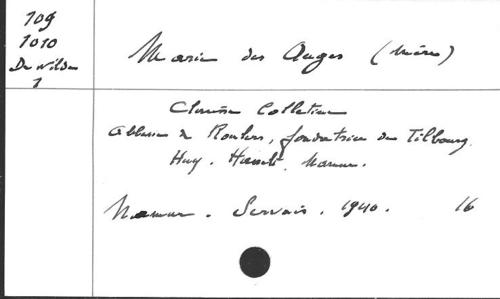 109
1010
De Wilde
1
Marie des Anges (Mère)
Clarisse Colletine
Abbesse de Roulers, fondatrice de Tilbourg,
Huy. Hasselt. Namur.
Namur. Servais. 1940. 16